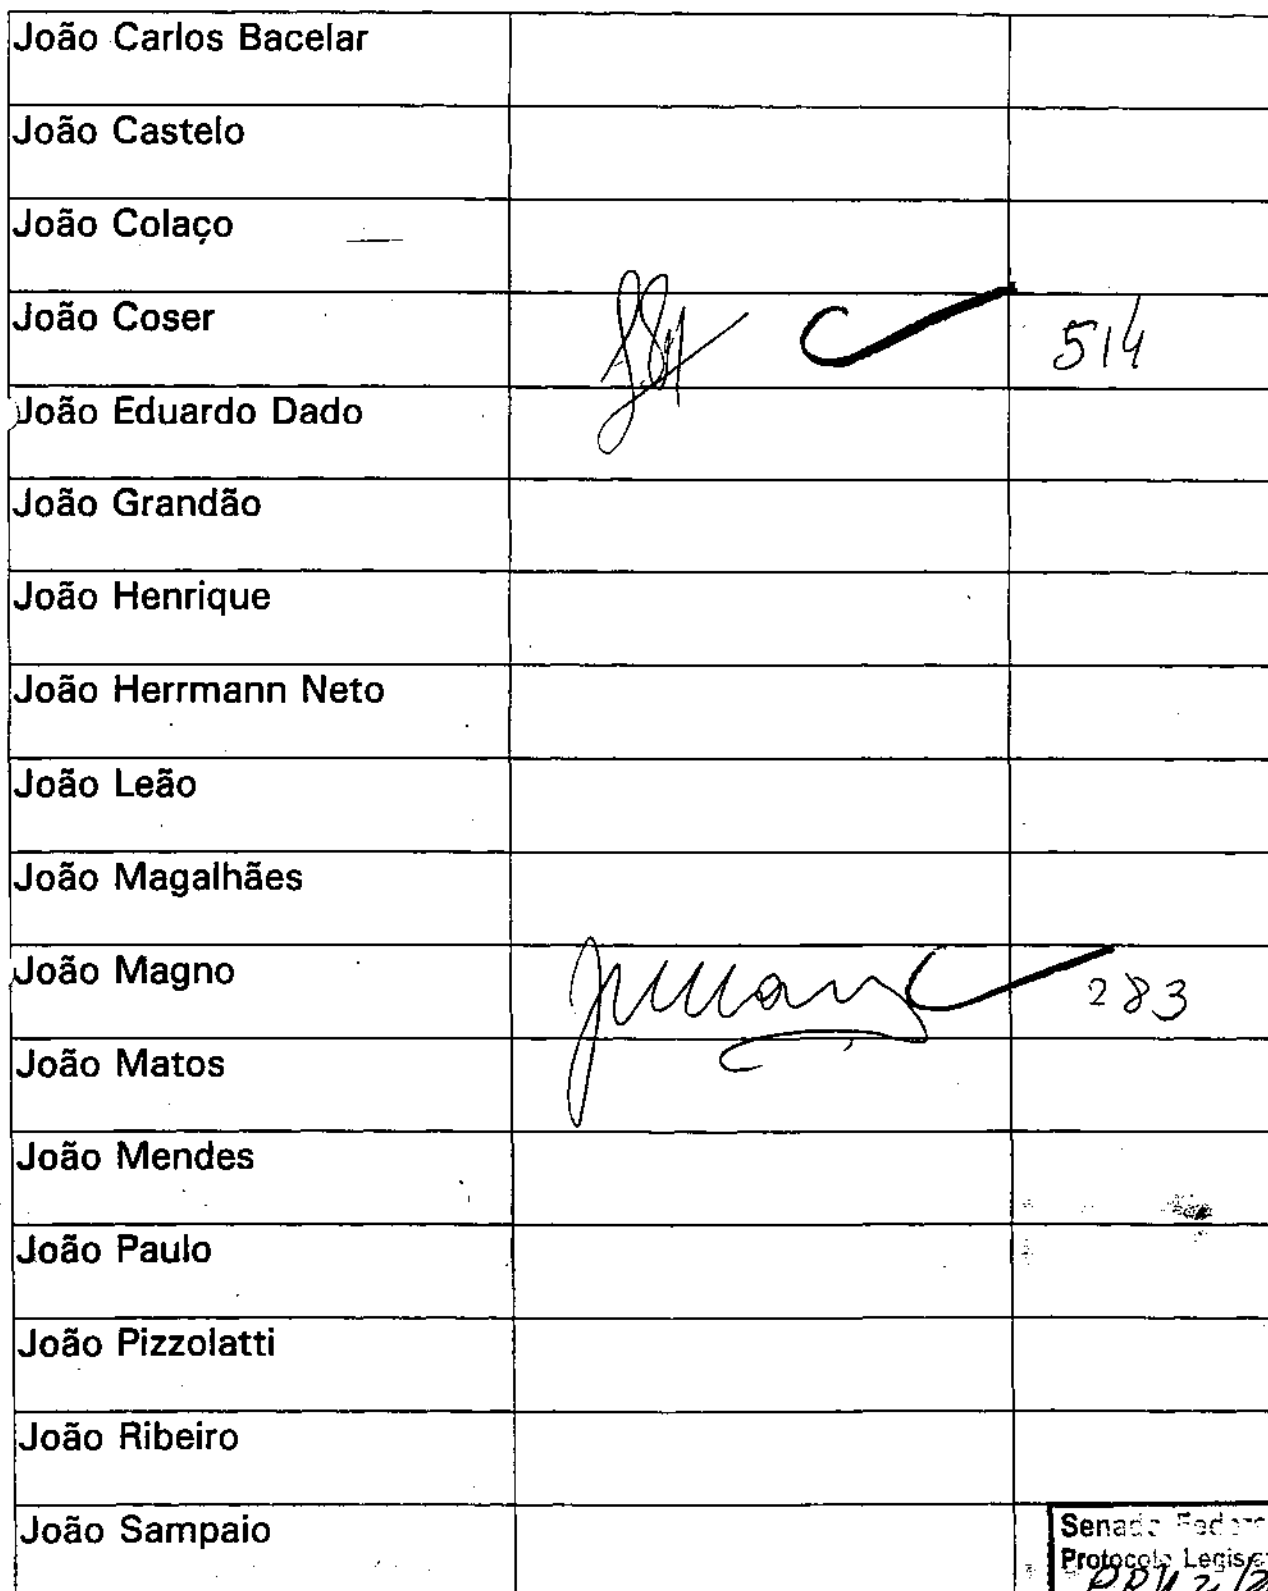 João Carlos Bacelar
João Castelo
João Colaço
João Coser 514
João Eduardo Dado
João Grandão
João Henrique
João Herrmann Neto
João Leão
João Magalhães
João Magno 283
João Matos
João Mendes
João Paulo
João Pizzolatti
João Ribeiro
João Sampaio
Senado
Protocolo